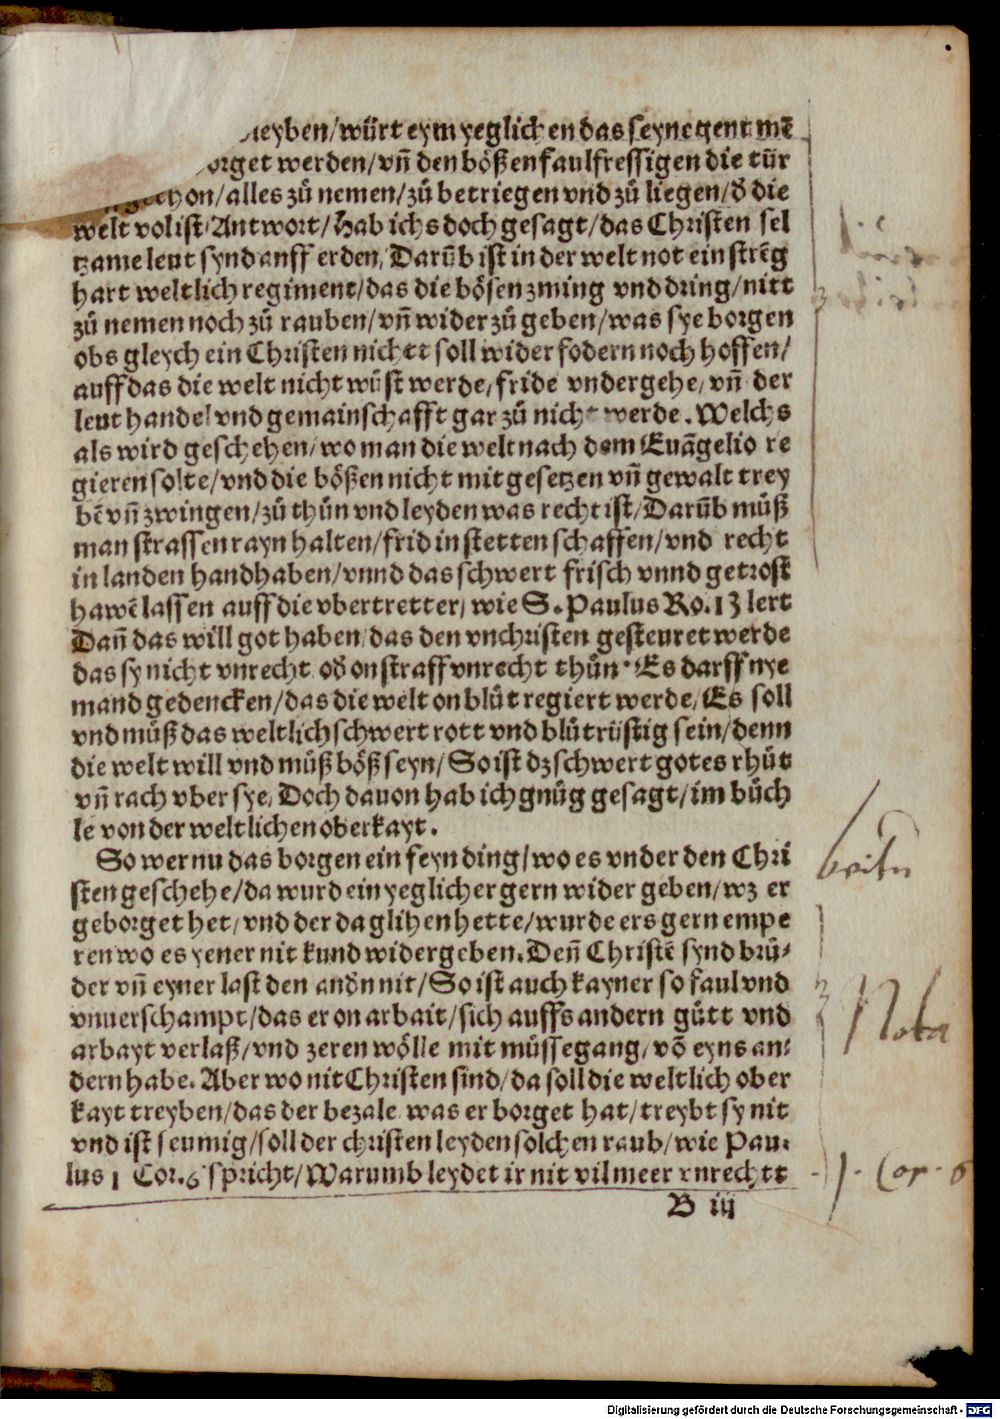 ieyben/würt eym yeglichen das seyne gent mē
orget werden/vñ den bößen faulfressigen die tür
hon/alles zů nemen/zů betriegen vnd zů liegen/d̄ die
welt vol ist/Antwort/Hab ichs doch gesagt/das Christen sel
tzame leut synd auff erden/Darūb ist in der welt not ein strēg
hart weltlich regiment/das die bösen zwing vnd dring/nitt
zů nemen noch zů rauben/vñ wider zů geben/was sye borgen
obs gleych ein Christen nichtt soll wider fodern noch hoffen/
auff das die welt nicht wůst werde/fride vndergehe/vñ der
leut handel vnd gemainschafft gar zů nicht werde. Welchs
als wird geschehen/wo man die welt nach dem Euāgelio re
gieren solte/vnd die bößen nicht mit gesetzen vñ gewalt trey
bē vñ zwingen/zů thůn vnd leyden was recht ist/Darūb můß
man strassen rayn halten/frid in stetten schaffen/vnd recht
in landen handhaben/vnnd das schwert frisch vnnd getrost
hawē lassen auff die vbertretter/wie S. Paulus Ro. 13 lert
Dañ das will got haben/das den vnchristen gesteuret werde
das sy nicht vnrecht od̄ on straff vnrecht thůn. Es darff nye
mand gedencken/das die welt on blůt regiert werde/Es soll
vnd můß das weltlich schwert rott vnd blůtrüstig sein/denn
die welt will vnd můß böß seyn/So ist dz schwert gotes rhůt
vñ rach vber sye/Doch dauon hab ich gnůg gesagt/im bůch
le von der weltlichen oberkayt.
So wer nu das borgen ein feyn ding/wo es vnder den Chri
sten geschehe/da wurd ein yeglicher gern wider geben/wz er
geborget het/vnd der da glihen hette/wurde ers gern empe
ren wo es yener nit kund widergeben. Deñ Christē synd brů-
der vñ eyner last den and̄n nit/So ist auch kayner so faul vnd
vnuerschampt/das er on arbait/sich auffs andern gůtt vnd
arbayt verlaß/vnd zeren wölle mit müssegang/vō eyns an-
dern habe. Aber wo nit Christen sind/da soll die weltlich ober
kayt treyben/das der bezale was er borget hat/treybt sy nit
vnd ist seumig/soll der christen leyden solchen raub/wie Pau-
lus 1 Cor. 6 spricht/Warumb leydet ir nit vil meer vnrechtt
B iij
Nota
1. Cor. 6
Digitalisierung gefördert durch die Deutsche Forschungsgemeinschaft - DFG